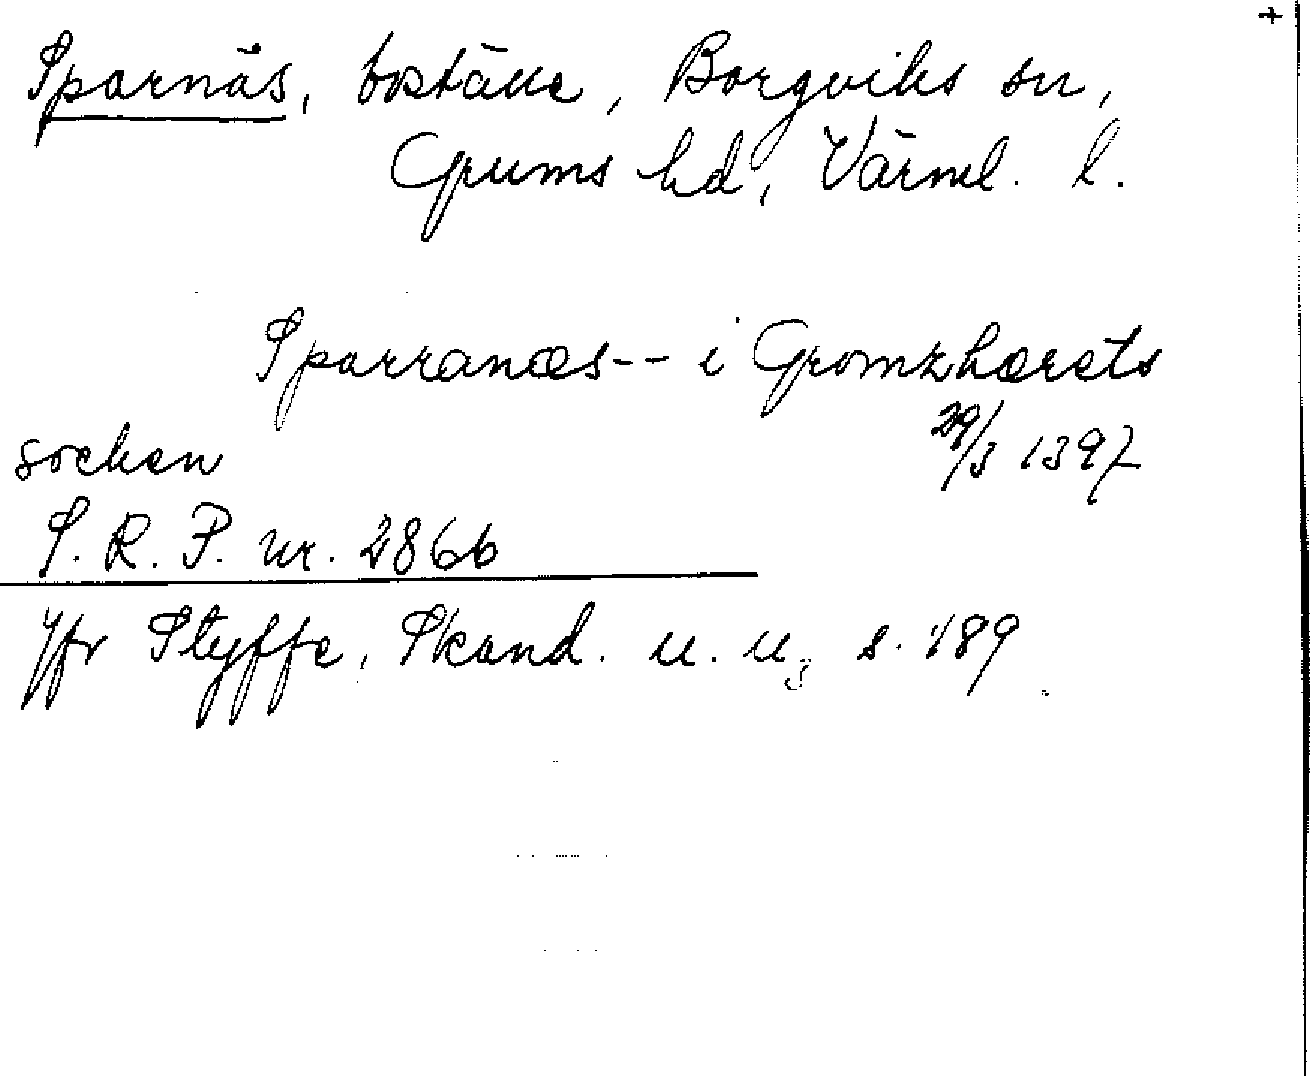 +
Sparnäs, boställe, Borgviks sn,
Grums hd, Värml. l.
Sparranæs-- i Gromzhærets
socken 29/3 1397
S. R. P. nr. 2866
Jfr Styffe, Skand. u. u3 s. 189.